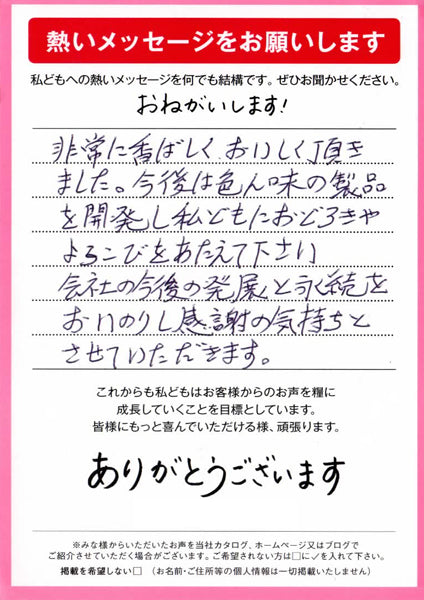 熱いメッセージをお願いします
私どもへの熱いメッセージを何でも結構です。ぜひお聞かせください。
おねがいします!
非常に香ばしくおいしく頂き
ました。今後は色ん味の製品
を開発し私どもにおどろきや
よろこびをあたえて下さい
会社の今後の発展と永続を
おいのりし感謝の気持ちと
させていただきます。
これからも私どもはお客様からのお声を糧に
成長していくことを目標としています。
皆様にもっと喜んでいただける様、頑張ります。
ありがとうございます
※みな様からいただいたお声を当社カタログ、ホームページ又はブログで
ご紹介させていただく場合がございます。ご希望されない方は□に✓を入れて下さい。
掲載を希望しない□ (お名前・ご住所等の個人情報は一切掲載いたしません)